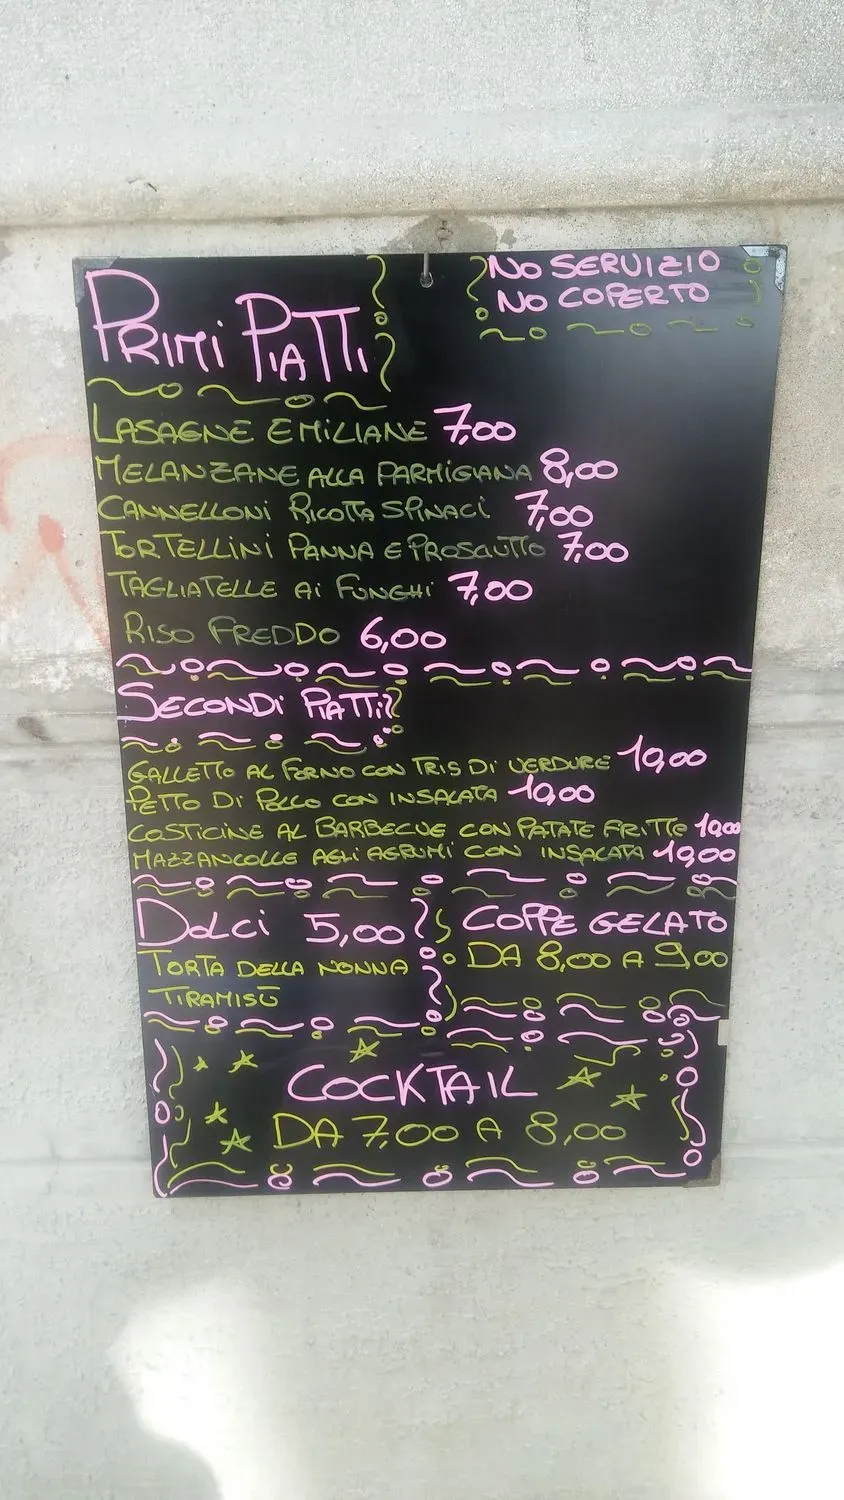 PRIMI PIATTI
NO SERVIZIO
NO COPERTO
LASAGNE EMILIANE 7,00
MELANZANE ALLA PARMIGIANA 8,00
CANNELLONI RICOTTA SPINACI 7,00
TORTELLINI PANNA E PROSCIUTTO 7,00
TAGLIATELLE AI FUNGHI 7,00
RISO FREDDO 6,00
SECONDI PIATTI
GALLETTO AL FORNO CON TRIS DI VERDURE 10,00
PETTO DI POLLO CON INSALATA 10,00
COSTICINE AL BARBECUE CON PATATE FRITTE 10,00
MAZZANCOLLE AGLI AGRUMI CON INSALATA 10,00
DOLCI 5,00
TORTA DELLA NONNA
TIRAMISÙ
COPPE GELATO
DA 8,00 A 9,00
COCKTAIL
DA 7,00 A 8,00